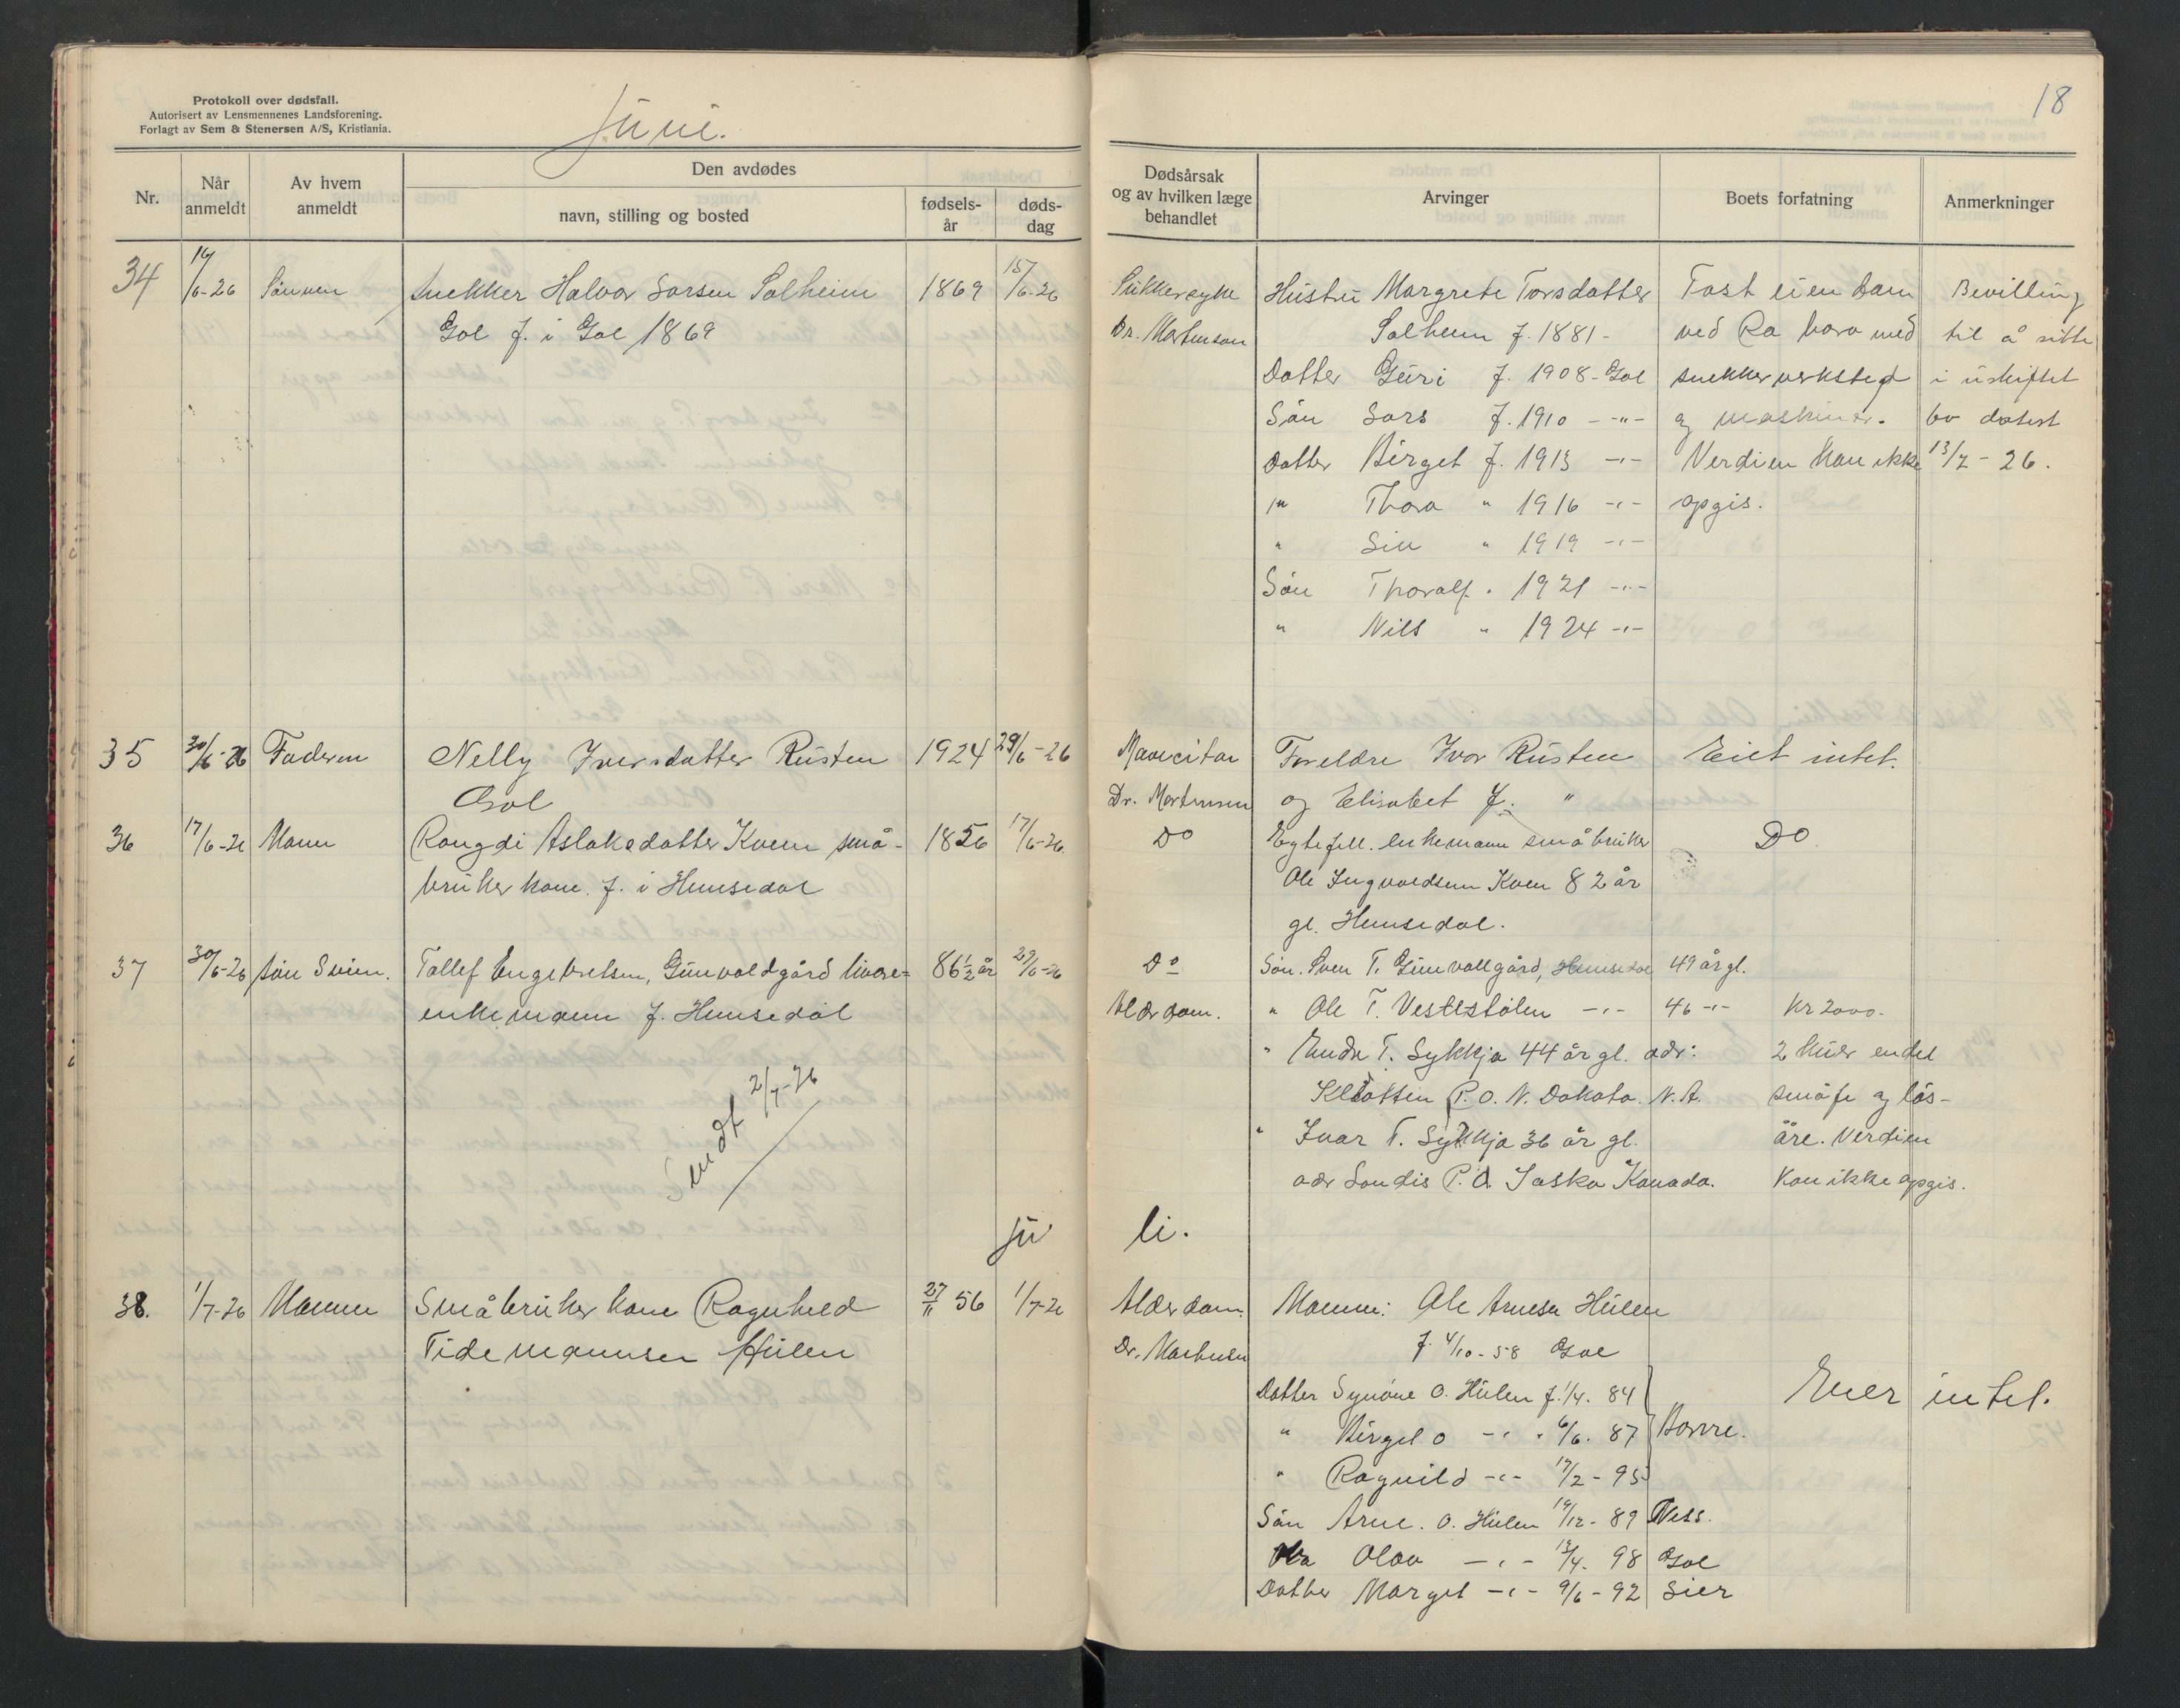 Protokoll over dødsfall.
Autorisert av Lensmennenes Landsforening.
Forlagt av Sem & Stenersen A/S, Kristiania.
Juni.
18
Nr.
Når anmeldt
Av hvem anmeldt
Den avdødes
navn, stilling og bosted
fødselsår
dødsdag
Dødsårsak og av hvilken læge behandlet
Arvinger
Boets forfatning
Anmerkninger
34 16/6-26 Sönnen snekker Halvor Larsen Solheim 1869 15/6-26 Sukkersyke Hustru Margrete Torsdatter Fast eiendom Bevilling
Gol f. i Gol 1869 Dr. Mortensen Solheim f. 1881- ved Ro bara med til å sitte
Datter Guri f. 1908- Gol snekkerverksted i uskiftet
Sön Lars f. 1910 -"- og maskiner. bo datert
Datter Birget f. 1913 -"- Verdien kan ikke 13/7-26.
" Thora " 1916 -"- opgis.
" Siv " 1919 -"-
Sön Thoralf " 1921 -"-
" Nils " 1924 -"-
35 30/6-26 Faderen Nelly Iversdatter Rusten 1924 29/6-26 Foreldre Ivor Rusten Eiet intet.
Gol Dr. Mortensen og Elisabet f. "
36 17/6-26 Mann Rangdi Aslaksdatter Kven små- 1856 17/6-26 Do Egtefell. enkemann småbruker Do
bruker kone. f. i Hemsedal Ole Ingvoldsen Kven 82 år
gl. Hemsedal.
37 30/6-26 sön Svein. Tollef Engebretsen, Gunvoldgård livøre- 86½ år 29/6-26 Do Sön. Sven T. Gunvallgård, Hemsedal 49 år gl.
enkemann f. Hemsedal Alderdom. " Ole T. Vestestölen -"- 46 -"- Kr 2000.
" Endre T. Lykkja 44 år gl. adr: 2 kuer endel
P.O. N. Dakota. N. A. småfe og lös-
" Ivar T. Lykkja 36 år gl. öre. Verdien
adr Landis P.O. Saska Kanada. kan ikke opgis.
Sendt 2/7-26
Juli.
38. 1/7-26 Mannen Småbrukerkone Ragnhild 27/11 56 1/7-26 Alderdom. Mannen: Ole Arnesen Hulen
Tidemannsen Hulen Dr. Mortensen f. 4/10-58 Gol
Datter Synöve O. Hulen f. 1/4. 84 Eier intet.
" Birget O -"- " 6/6. 87 Borre.
" Ragnild -"- 17/2-95
Sön Arne. O. Hulen 19/12-89 Ness.
Olav -"- 13/4-98 Gol
Datter Marget -"- 9/6-92 Lier